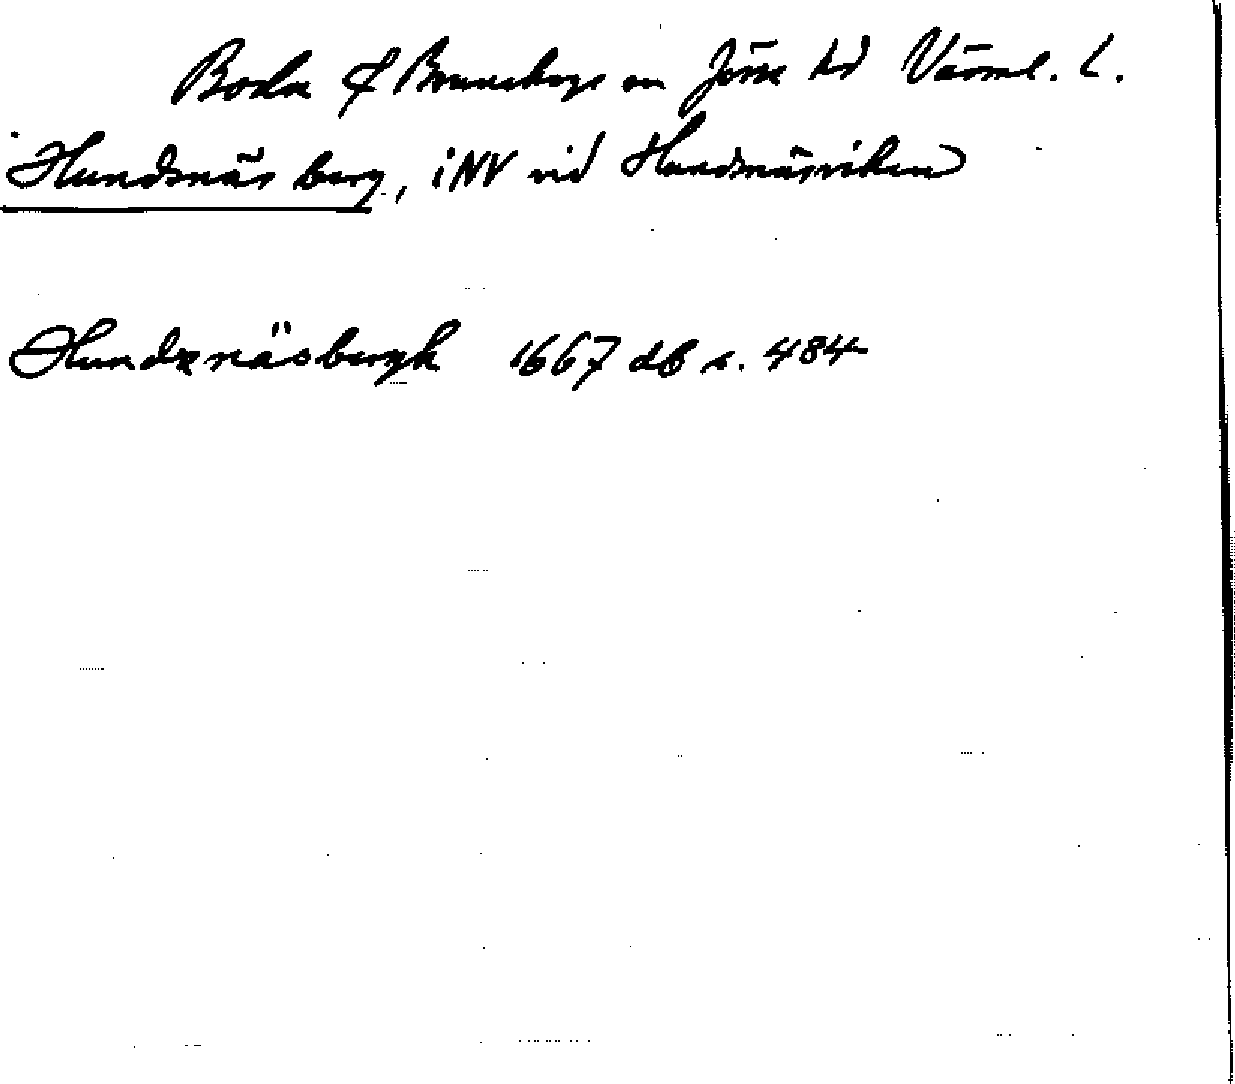 Boda & Brunskogs sn Jösse hd Värml. L.
Hundsnäs berg, i NV vid Hundsnäsviken
Hundznäsbergh 1667 db s. 484